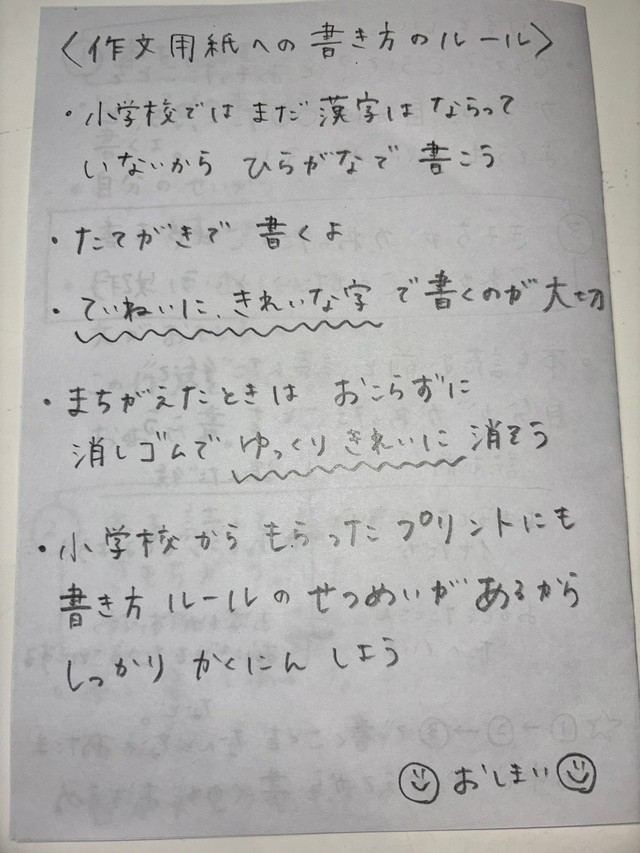 〈作文用紙への書き方のルール〉
・小学校ではまだ漢字はならって
いないから ひらがなで 書こう
・たてがきで 書くよ
・ていねいに、きれいな字で書くのが大切
・まちがえたときは おこらずに
消しゴムで ゆっくり きれいに 消そう
・小学校から もらった プリントにも
書き方 ルールの せつめいが あるから
しっかり かくにん しよう
おしまい